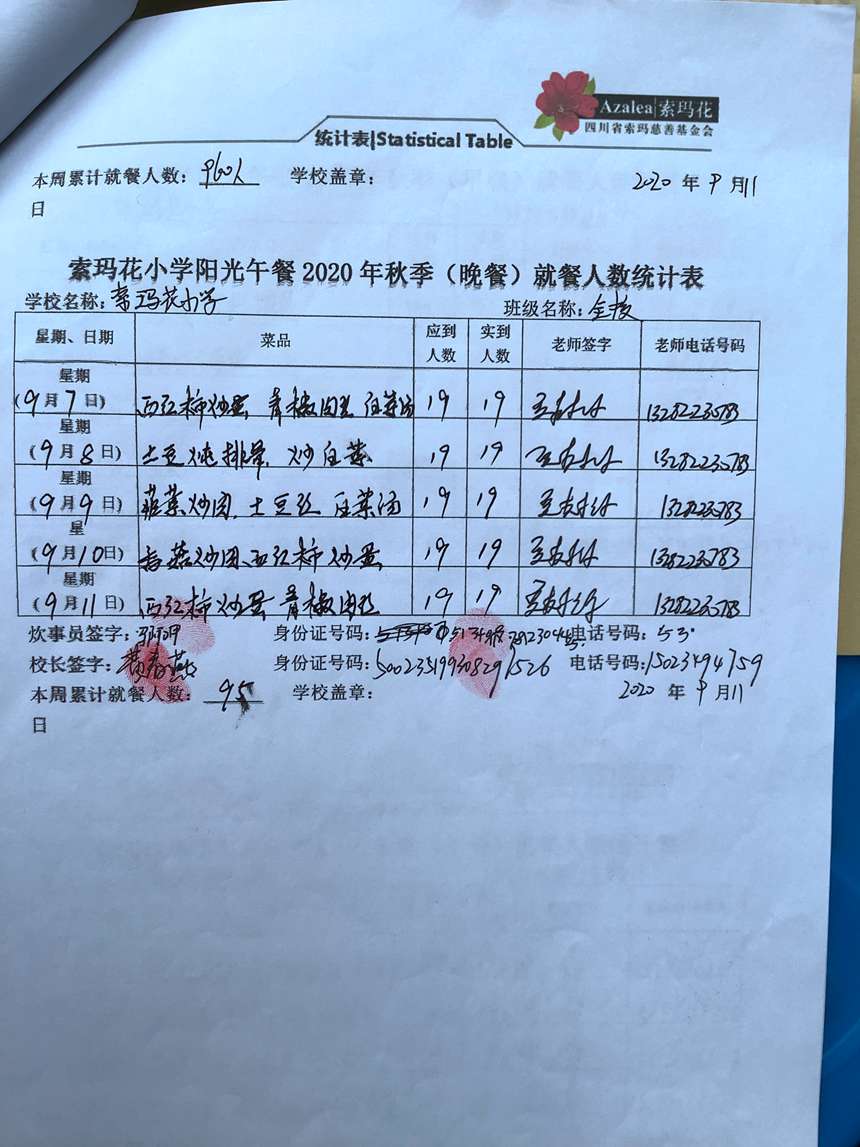 Azalea|索玛花
四川省索玛慈善基金会
统计表|Statistical Table
本周累计就餐人数：960人 学校盖章： 2020 年 9 月11
日
索玛花小学阳光午餐 2020 年秋季（晚餐）就餐人数统计表
学校名称：索玛花小学 班级名称：全校
星期、日期 菜品 应到人数 实到人数 老师签字 老师电话号码
星期（9月7日） 西红柿炒蛋 青椒肉丝 白菜汤 19 19 13282235783
星期（9月8日） 土豆炖排骨，炒白菜 19 19 13282235783
星期（9月9日） 蒜苔炒肉，土豆丝 白菜汤 19 19 13282235783
星（9月10日） 炒肉、西红柿炒蛋 19 19 13282235783
星期（9月11日） 西红柿炒蛋 青椒肉丝 19 19 13282235783
炊事员签字： 身份证号码： 电话号码：
校长签字： 身份证号码：500235199308291526 电话号码:15023494759
本周累计就餐人数：95 学校盖章： 2020 年 9 月11
日